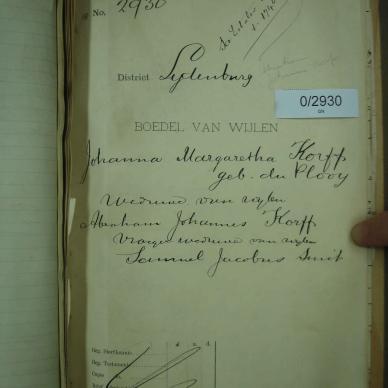 No. 2930
District Lydenburg
0/2930
BOEDEL VAN WIJLEN
Johanna Margaretha Korff
geb. du Plooy
Weduwe van wijlen
Abraham Johannes Korff
Vroeger weduwe van wijlen
Samuel Jacobus Smit
Reg. Sterfkennis
Reg. Testament